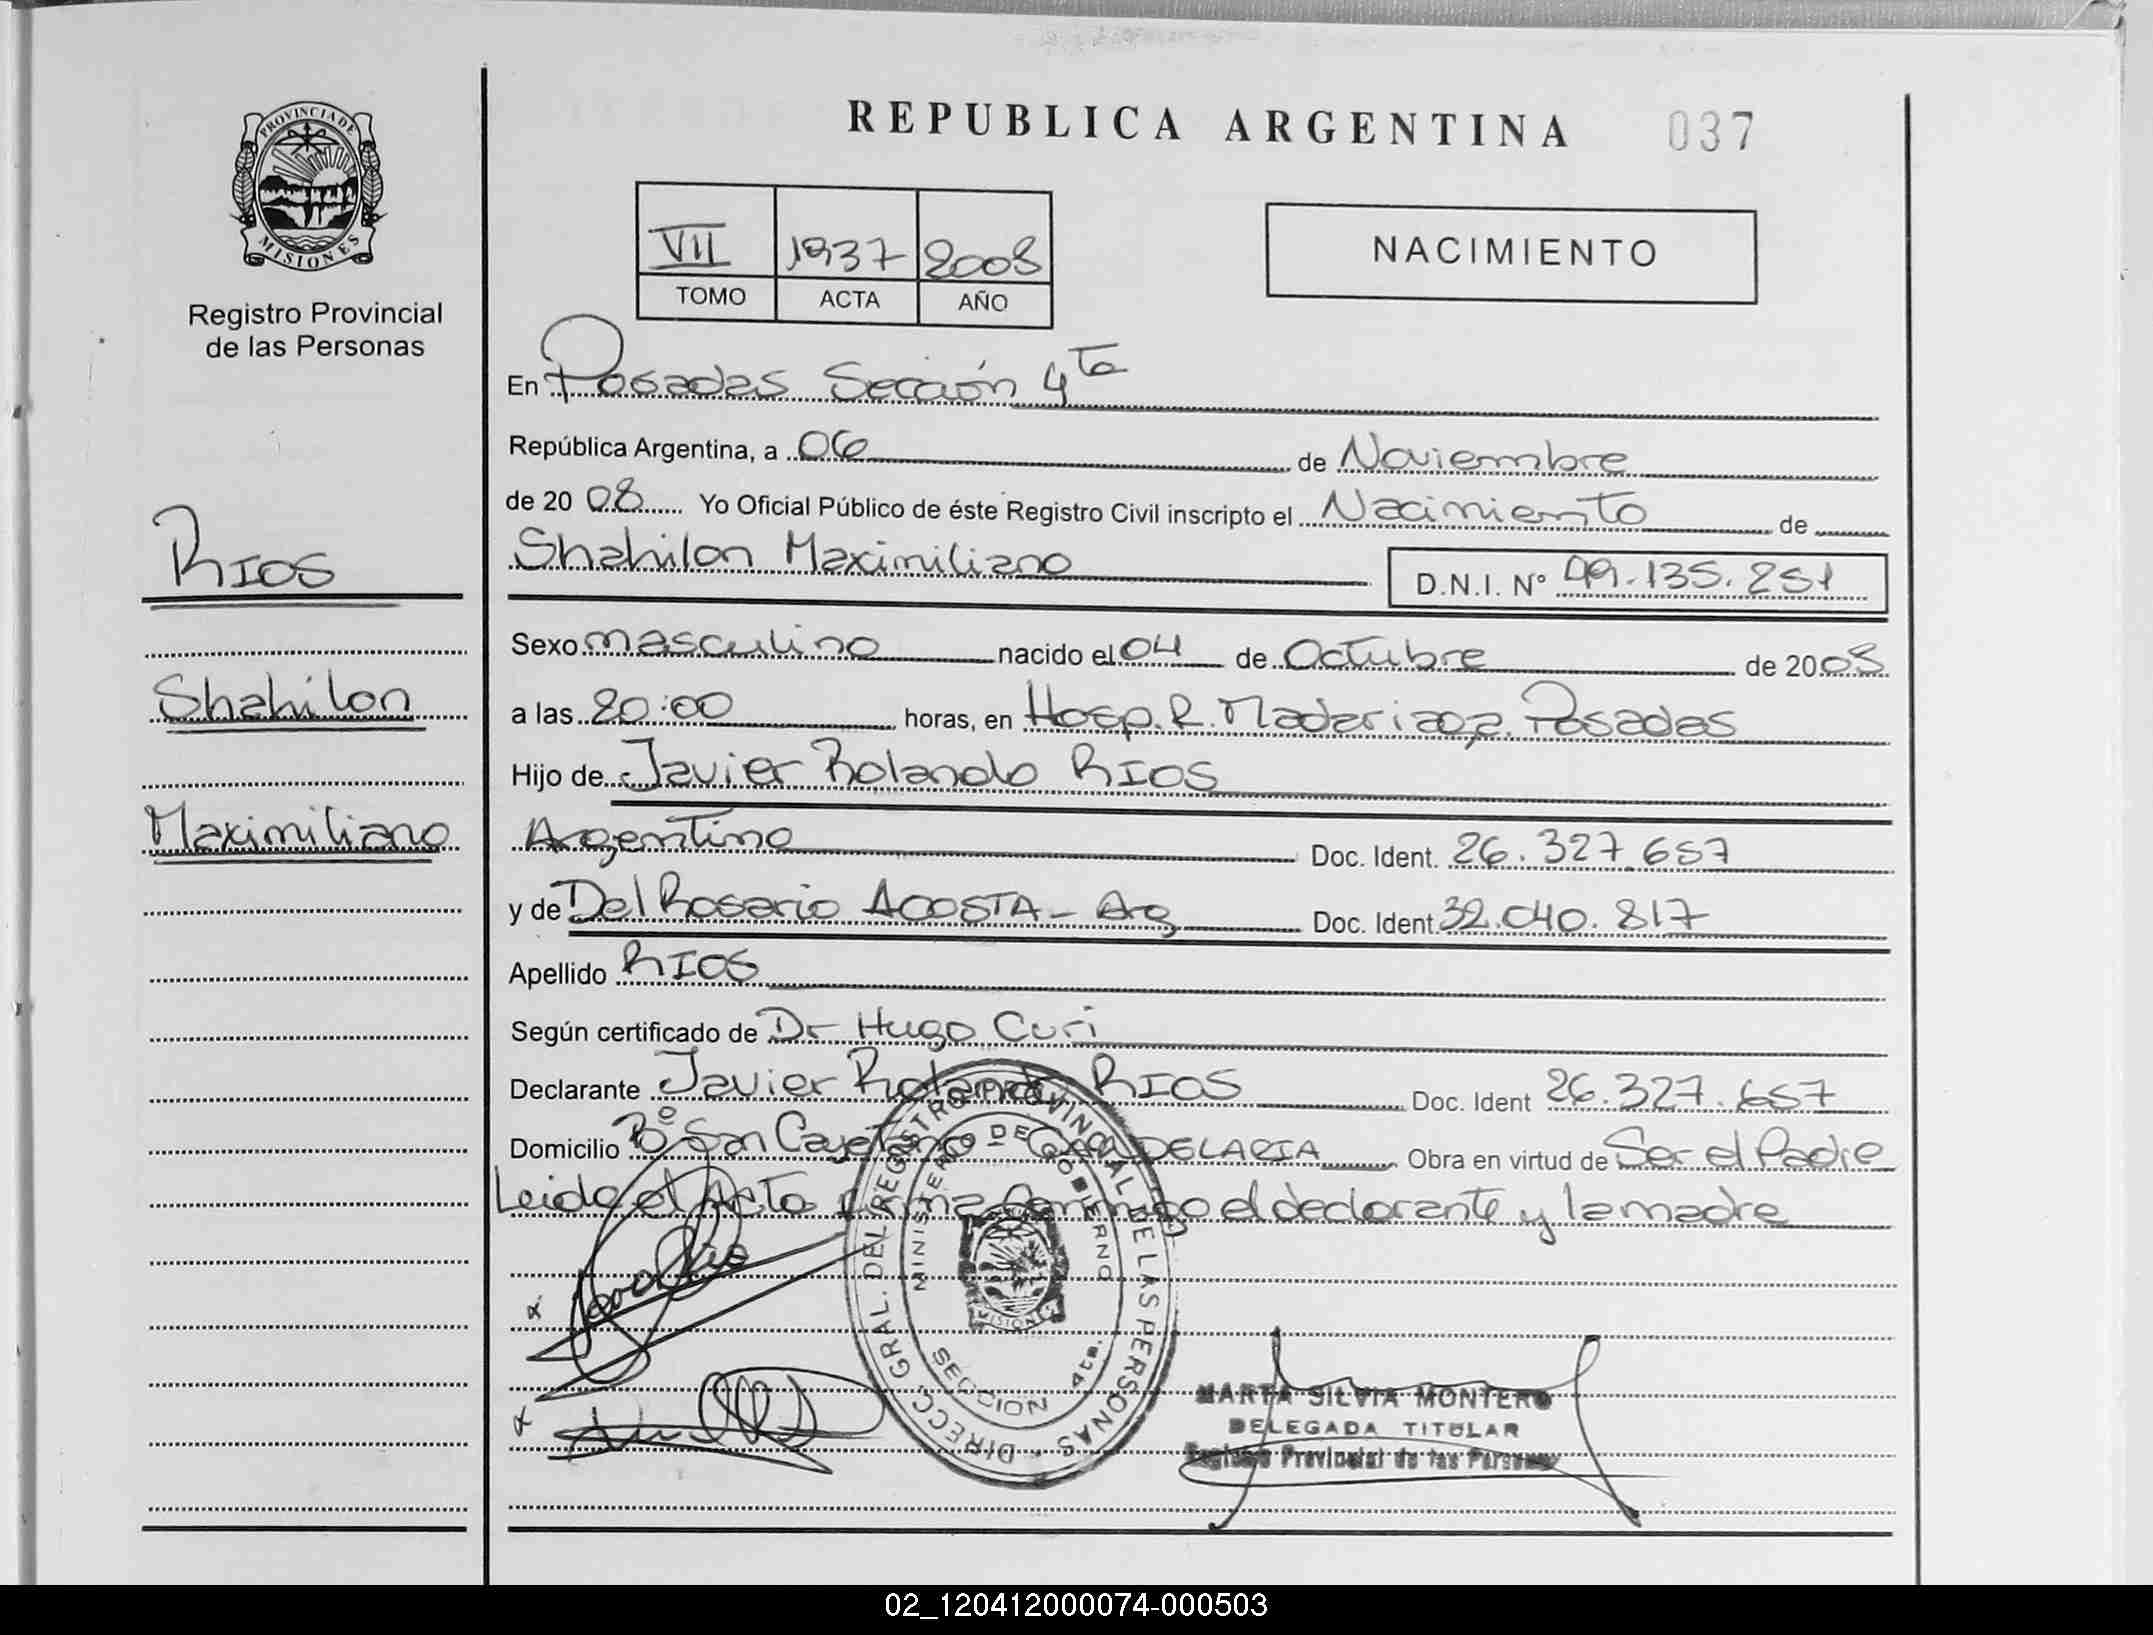 REPUBLICA ARGENTINA 037
PROVINCIA DE
MISIONES
Registro Provincial
de las Personas
VII 1937 2008
TOMO ACTA AÑO
NACIMIENTO
En Posadas Sección 4ta
República Argentina, a 06 de Noviembre
de 20 08 Yo Oficial Público de éste Registro Civil inscripto el Nacimiento de
Shahilon Maximiliano D.N.I. Nº 49.135.251
RIOS
Shahilon
Maximiliano
Sexo masculino nacido el 04 de Octubre de 2008
a las 20:00 horas, en Hosp. R. Madariaga. Posadas
Hijo de Javier Rolando RIOS
Argentino Doc. Ident. 26.327.657
y de Del Rosario ACOSTA - Arg Doc. Ident. 32.040.817
Apellido RIOS
Según certificado de Dr Hugo Curi
Declarante Javier Rolando RIOS Doc. Ident 26.327.657
Domicilio Bº San Cayetano CANDELARIA Obra en virtud de Ser el Padre
Leida el Acta Firma Conmigo el declarante y la madre
DIRECC. GRAL. DEL REGISTRO PROVINCIAL DE LAS PERSONAS
MINISTERIO DE GOBIERNO
MISIONES
SECCION 4ta.
MARTA SILVIA MONTERO
DELEGADA TITULAR
Registro Provincial de las Personas
02_120412000074-000503